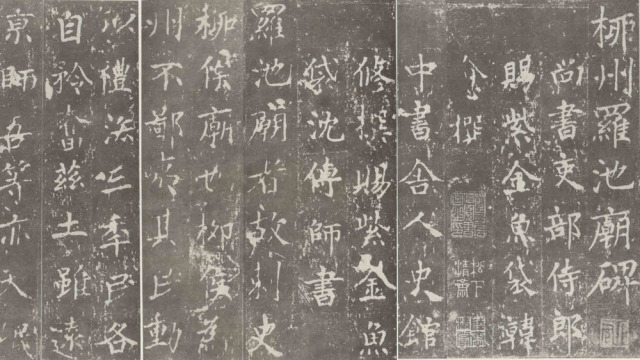 柳州羅池廟碑
尚書吏部侍郎
賜紫金魚袋韓
愈撰
中書舍人史館
修撰賜紫金魚
袋沈傳師書
羅池廟者故刺史
柳侯廟也柳侯為
州不鄙夷其民動
以禮法三年民各
自矜奮茲土雖遠
京師吾等亦天氓